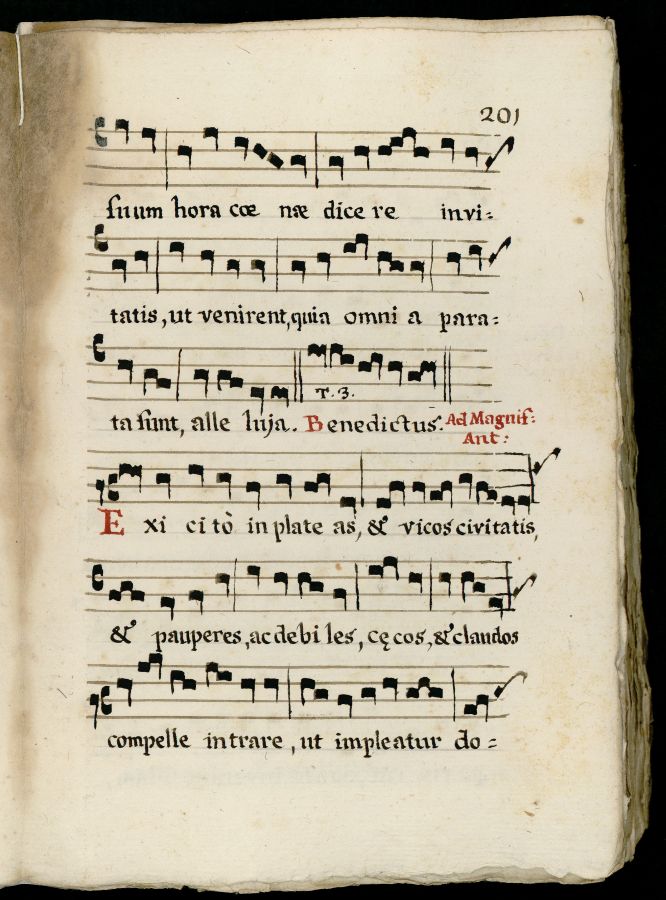 201
suum hora cœ næ dice re invi=
tatis, ut venirent, quia omni a para=
T. 3.
ta sunt, alle luja. Benedictus. Ad Magnif:
Ant:
Exi ci tò in plate as, & vicos civitatis,
& pauperes, ac de bi les, cęcos, & claudos
compelle intrare, ut impleatur do=